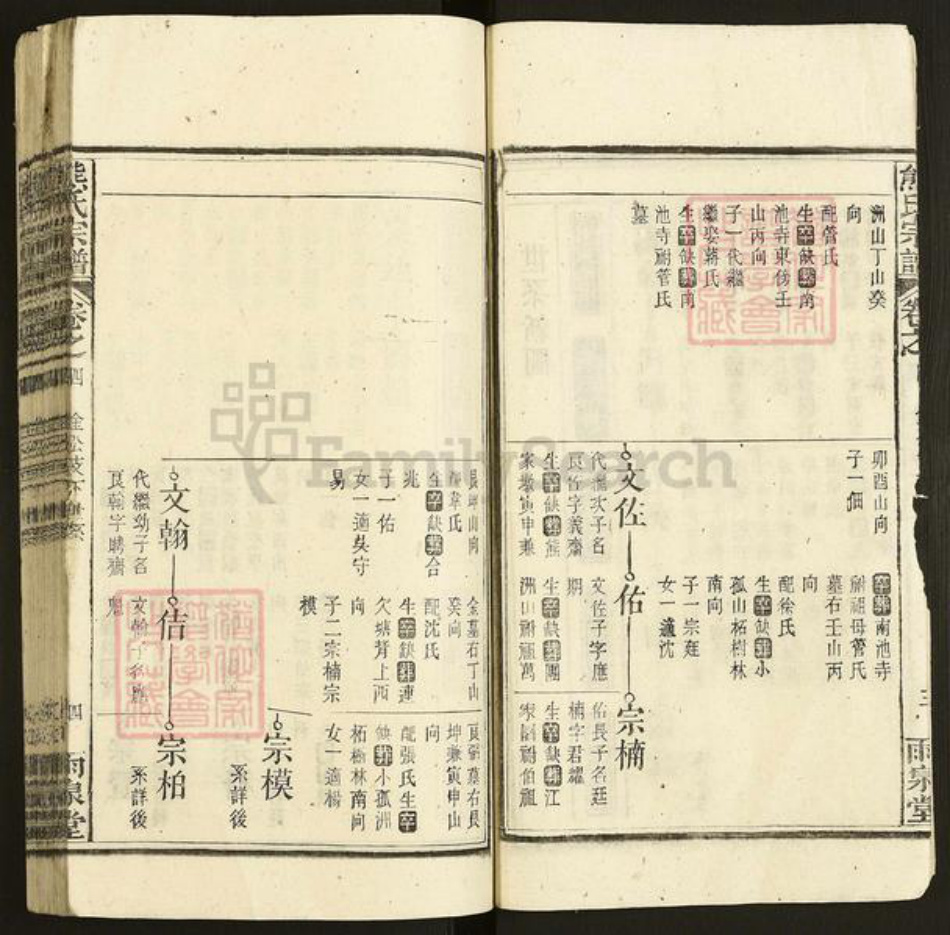 熊氏宗譜
卷之
雨泉堂
洲山丁山癸
向
配管氏
生卒缺葬南
池寺東傍壬
山丙向
子一代繼
繼娶蔣氏
生卒缺葬南
池寺祔管氏
墓
卯酉山向
子一佃
文佐
代繼次子名
良佐字義齋
生卒缺葬熊
家墩寅申兼
卒葬南池寺
祔祖母管氏
墓右壬山丙
向
配徐氏
生卒缺葬小
孤山柘樹林
南向
子一宗庭
女一適沈
佑
文佐子字應
期
生卒缺葬團
洲山祔祖萬
宗楠
佑長子名廷
楠字君耀
生卒缺葬江
家嘴祔伯祖
艮坤山向
配韋氏
生卒缺葬合
兆
子一佑
女一適吳守
易
文翰
代繼幼子名
良翰字聘齋
金墓右丁山
癸向
配沈氏
生卒缺葬連
欠塘背上西
向
子二宗楠宗
模
佶
文翰子名應
良弼墓右艮
坤兼寅申山
向
配張氏生卒
缺葬小孤洲
柘樹林南向
女一適楊
宗模
系詳後
宗柏
系詳後
熊氏宗譜
卷之四
四
雨泉堂
FamilySearch